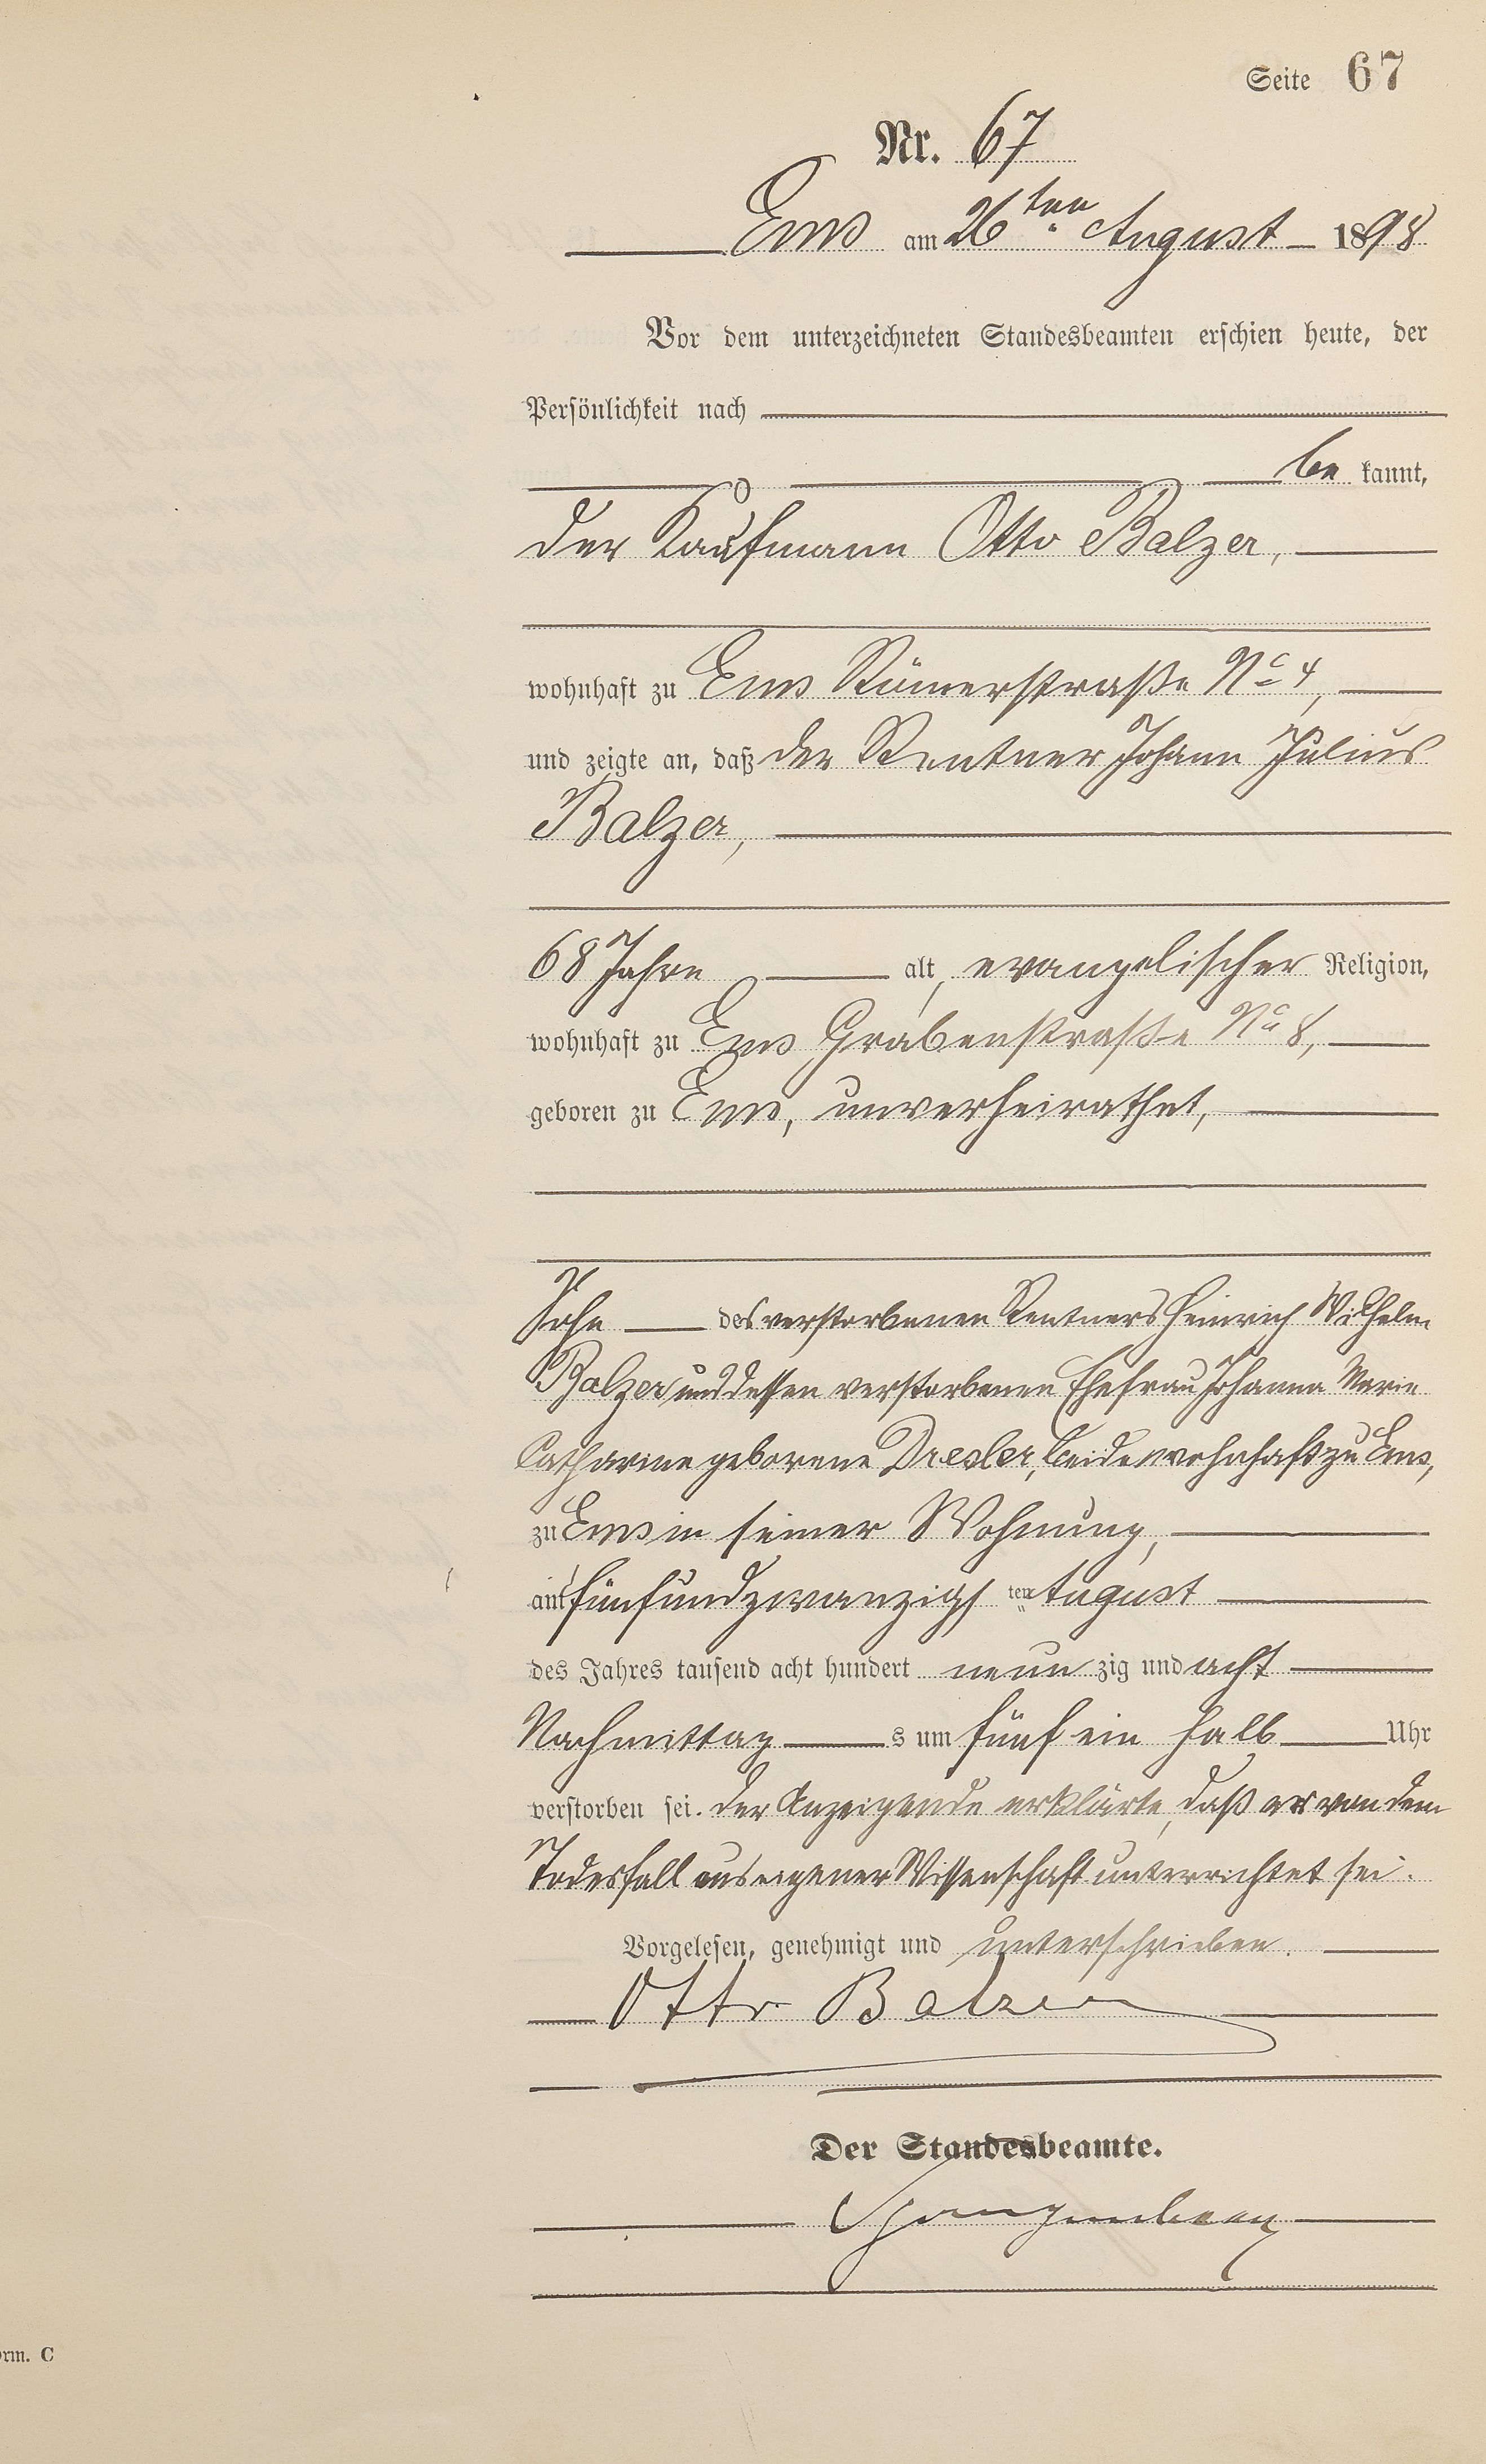 Seite 67
Nr. 67
Ems am 26ten August 1898
Vor dem unterzeichneten Standesbeamten erschien heute, der
Persönlichkeit nach
be kannt,
der Kaufmann Otto Balzer,
wohnhaft zu Ems Römerstraße No 4,
und zeigte an, daß der Rentner Johann Julius
Balzer,
68 Jahre alt, evangelischer Religion,
wohnhaft zu Ems Grabenstraße No 8,
geboren zu Ems, unverheirathet,
Sohn des verstorbenen Rentners Heinrich Wilhelm
Balzer und dessen verstorbenen Ehefrau Johanna Marie
Catharine geborene Dresler, beide wohnhaft zu Ems,
zu Ems in seiner Wohnung,
am fünfundzwanzigs ten August
des Jahres tausend acht hundert neun zig und acht
Nachmittag s um fünf ein halb Uhr
verstorben sei. Der Anzeigende erklärte, daß er von dem
Todesfall aus eigener Wissenschaft unterrichtet sei.
Vorgelesen, genehmigt und unterschrieben.
Otto Balzer
Der Standesbeamte.
orm. C